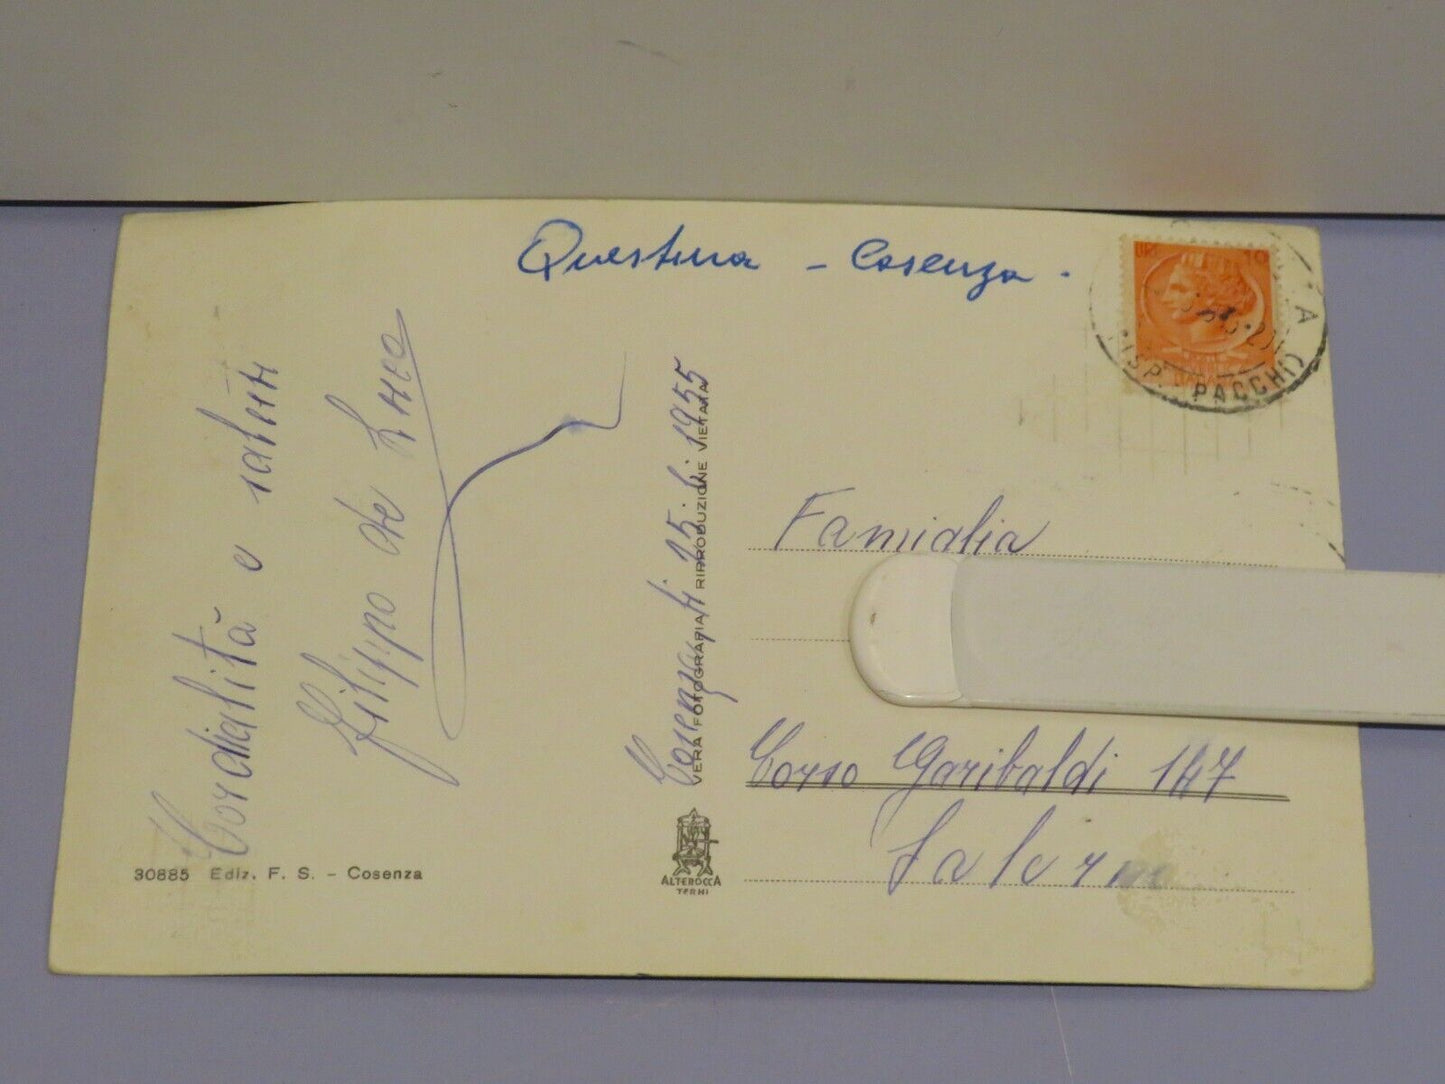 Questura - Cosenza.
LIRE 10
DISP. PACCHI
A
Cordialità e saluti
Filippo de Luca
Cosenza, li 25.6.1955
VERA FOTOGRAFIA RIPRODUZIONE VIETATA
Famiglia
Corso Garibaldi 147
Salerno
30885 Ediz. F. S. - Cosenza
ALTEROCCA
TERNI